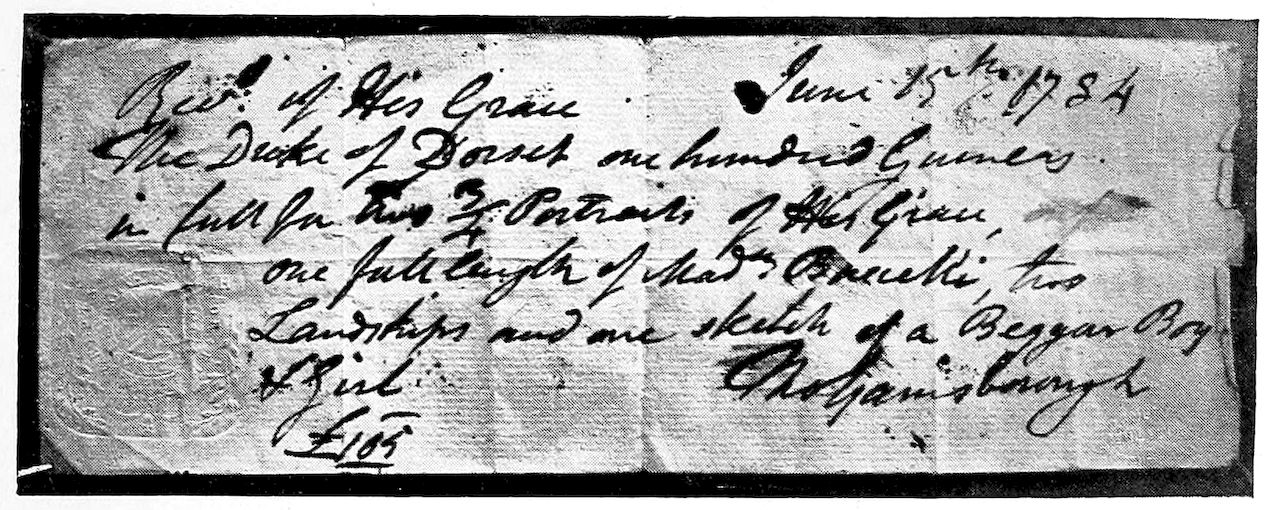 Recd. of His Grace June 15th 1784
The Duke of Dorset one hundred Guineas
in full for two 3/4 Portraits of His Grace,
one full length of Madm Baccelli, two
Landskips and one sketch of a Beggar Boy
& Girl
Tho Gainsborough
£105